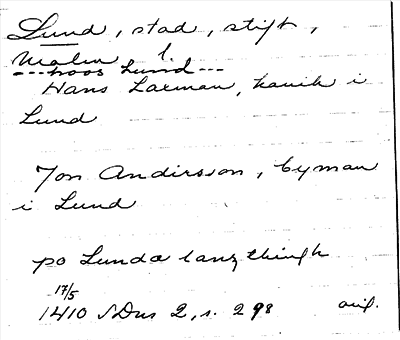 Lund, stad, stift,
Malm. l.
---hoos Lund---
Hans Laxman, kanik i
Lund
Jon Andirsson, byman
i Lund
po Lunda lanzthingh
17/5
1410 SDns 2, s. 298 orig.